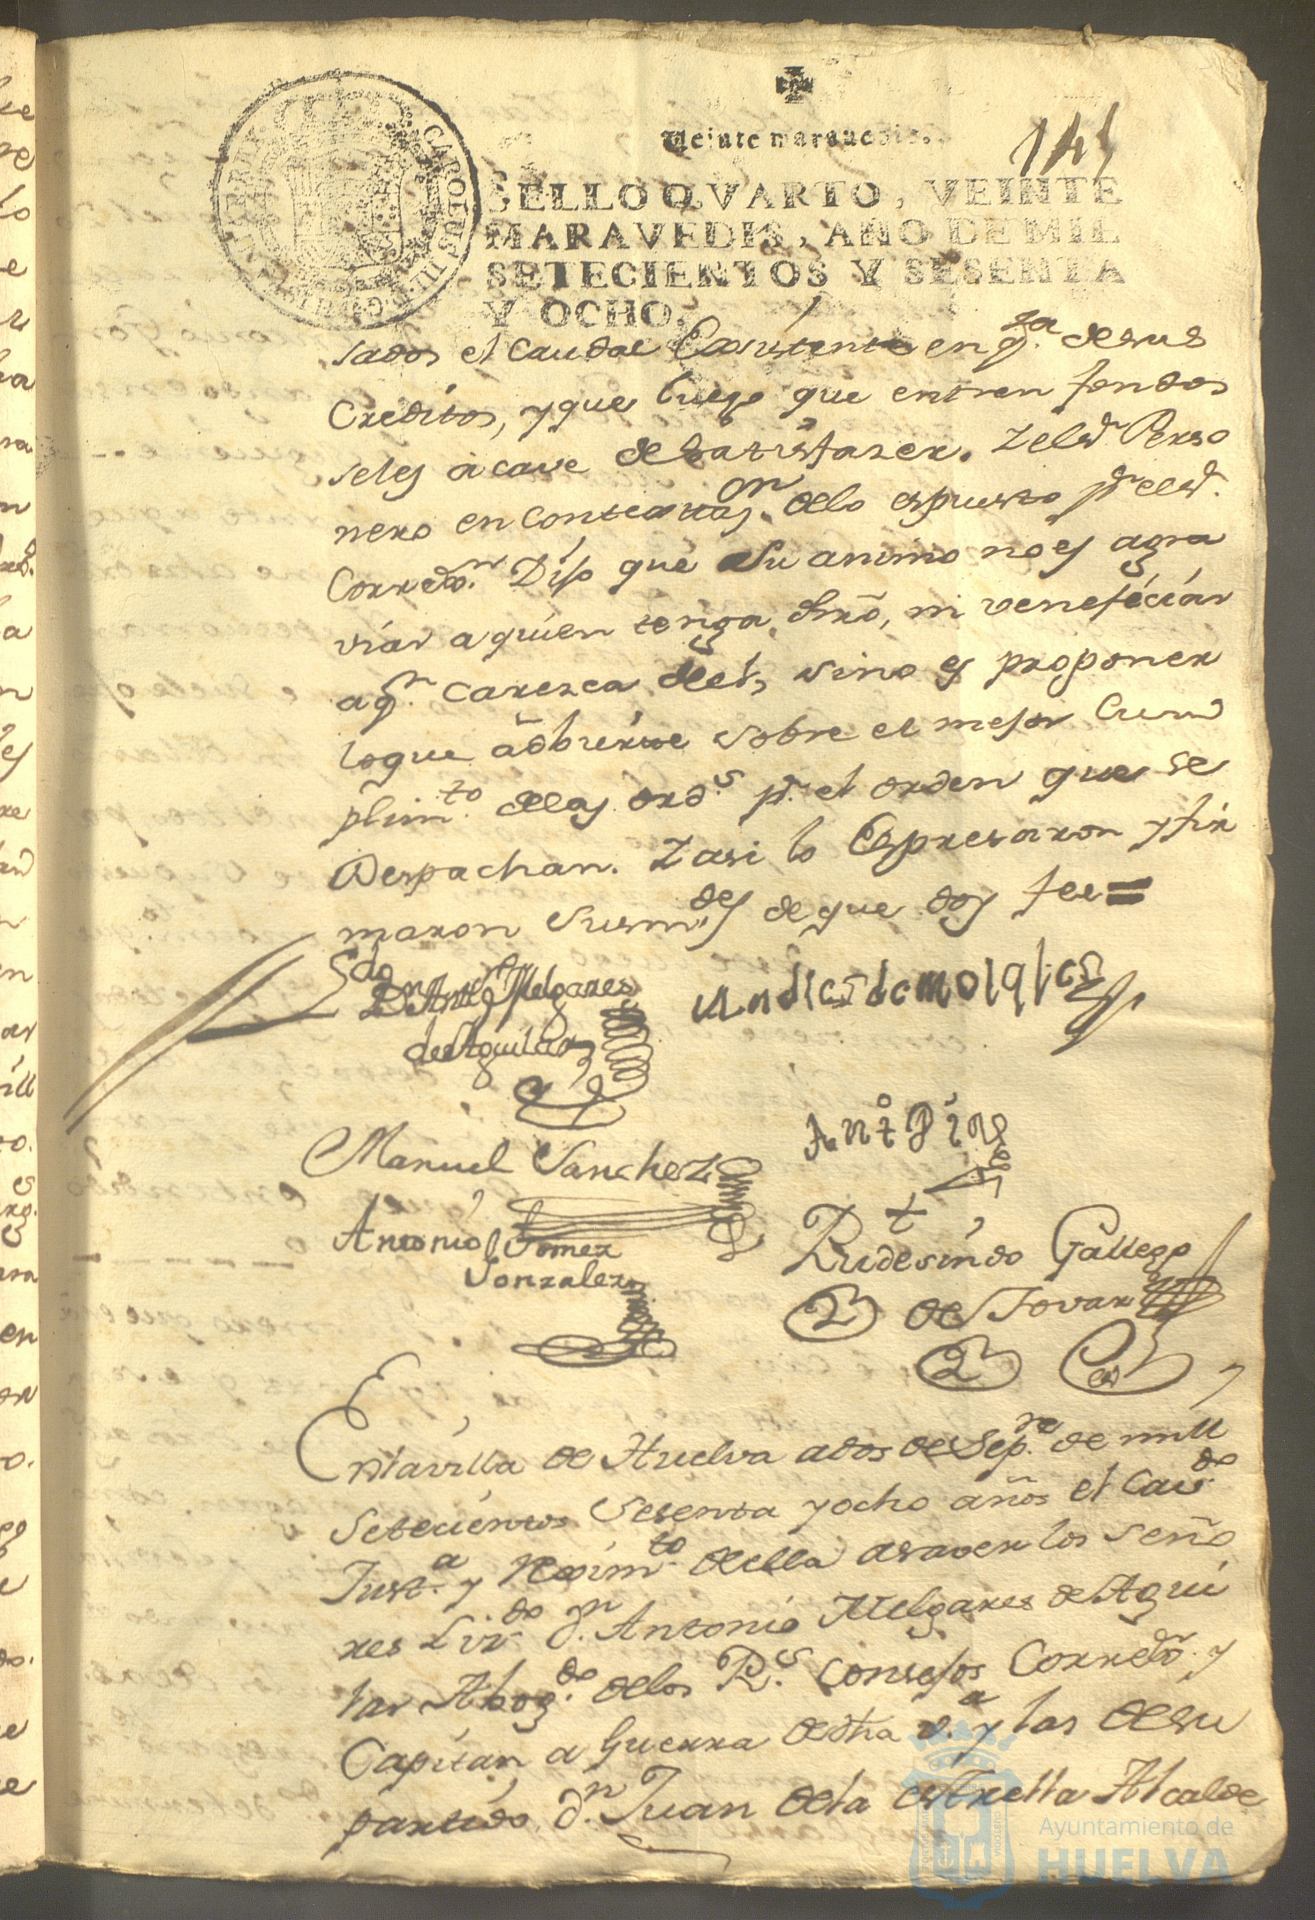 Veinte maravedis.
141
SELLO QVARTO, VEINTE
MARAVEDIS, AÑO DE MIL
SETECIENTOS Y SESENTA
Y OCHO.
CAROLUS III. D. G. HISPANIAR. REX
sados el caudal Existente en qta. desus
Creditos, yque luego que entren fondos
seles acave de satisfazer. Zelsr. Perso
nero en contextazon. delo espuesto pr. elsr.
Corredor. Dijo que su animo noes agra
viar aquien tenga drño, ni veneficiar
aqn. caresca del, sino es proponer
loque adbierte sobre el mejor Cum
plimto. delas ords. pr. el orden que se
Despachan. Zasi lo Espresaron yfir
maron susmdes. de que doy fee =
Ldo Dn Antto Melgares
de Aguilar
Manuel Sanchez
Antto Pin
Antonio Gomez
Gonzalez
Rudesindo Gallego
de Tovar
Enlavilla de Huelva ados de Sepre. de mill
Setecientos sesenta yocho años el Cavdo.
Justa. y Reximto. deella asaver los Seño
res Lizdo. Dn. Antonio Melgares de Agui
lar Abogdo. delos Rs. Consejos Corredor. y
Capitan a Guerra dedha va. y las desu
partido, Dn. Juan dela estrella Alcalde
Ayuntamiento de
HUELVA